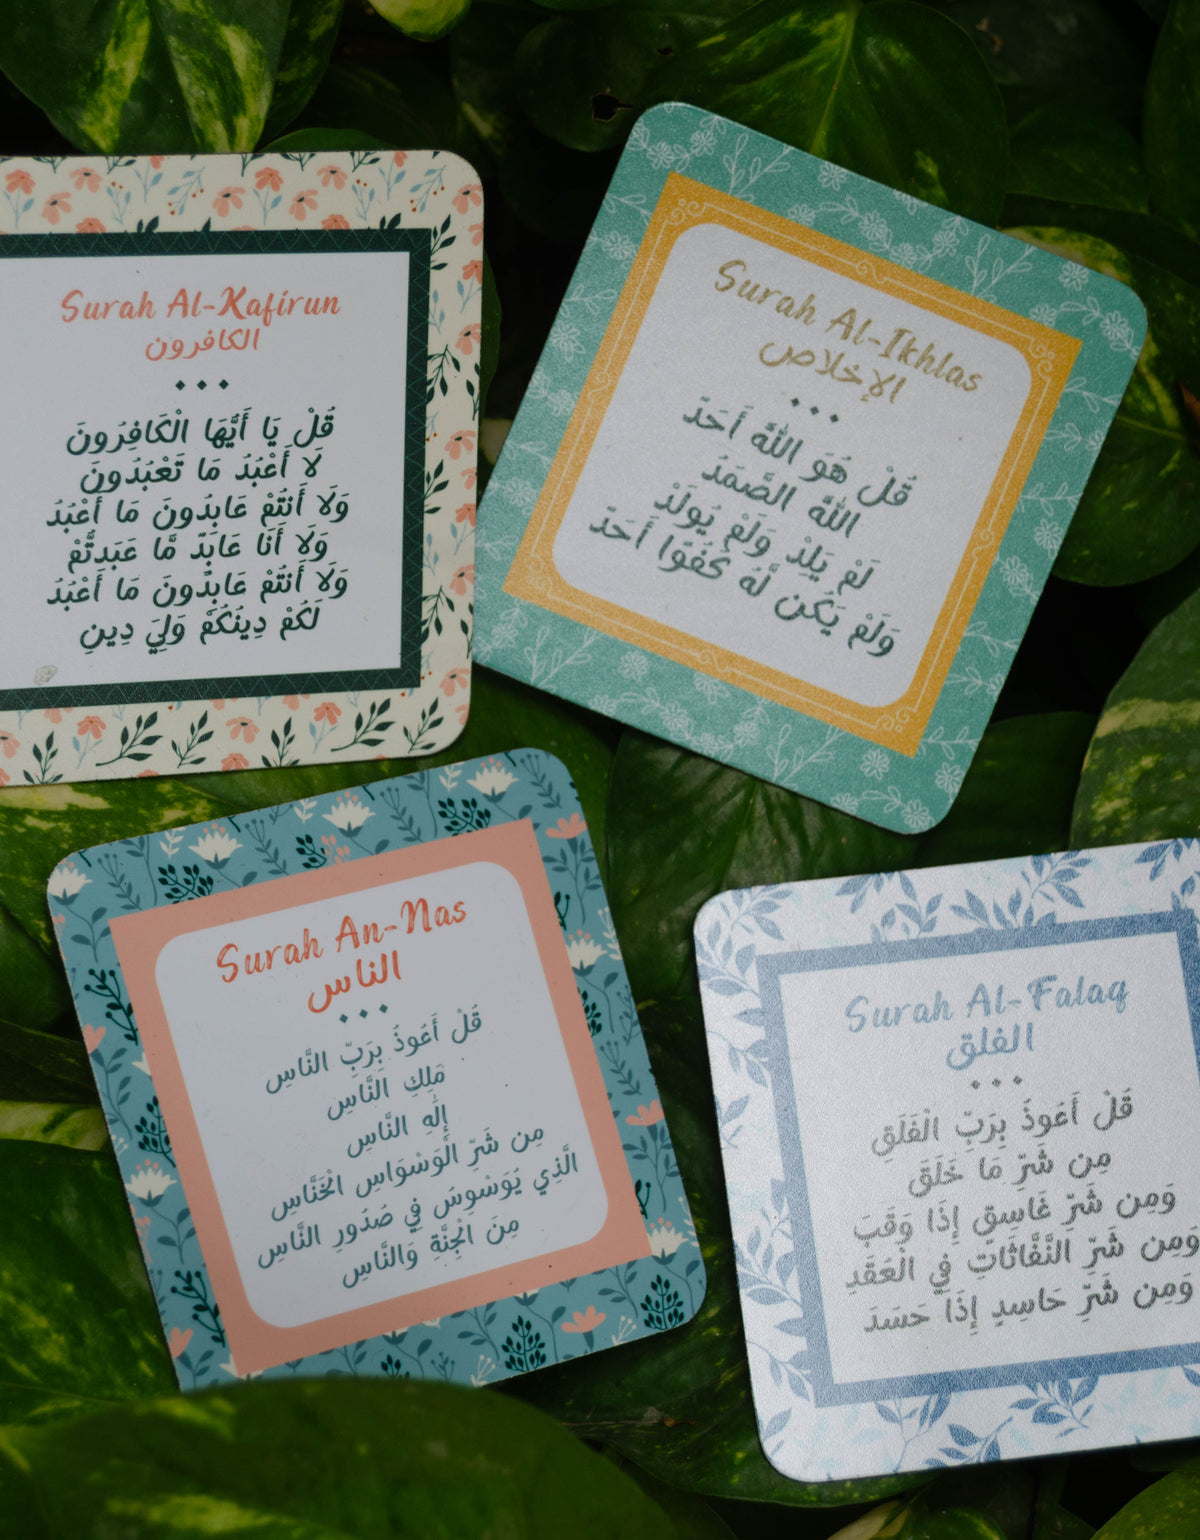 Surah Al-Kafirun
الكافرون
قُلْ يَا أَيُّهَا الْكَافِرُونَ
لَا أَعْبُدُ مَا تَعْبُدُونَ
وَلَا أَنتُمْ عَابِدُونَ مَا أَعْبُدُ
وَلَا أَنَا عَابِدٌ مَّا عَبَدتُّمْ
وَلَا أَنتُمْ عَابِدُونَ مَا أَعْبُدُ
لَكُمْ دِينُكُمْ وَلِيَ دِينِ
Surah Al-Ikhlas
الإخلاص
قُلْ هُوَ اللَّهُ أَحَدٌ
اللَّهُ الصَّمَدُ
لَمْ يَلِدْ وَلَمْ يُولَدْ
وَلَمْ يَكُن لَّهُ كُفُوًا أَحَدٌ
Surah An-Nas
الناس
قُلْ أَعُوذُ بِرَبِّ النَّاسِ
مَلِكِ النَّاسِ
إِلَٰهِ النَّاسِ
مِن شَرِّ الْوَسْوَاسِ الْخَنَّاسِ
الَّذِي يُوَسْوِسُ فِي صُدُورِ النَّاسِ
مِنَ الْجِنَّةِ وَالنَّاسِ
Surah Al-Falaq
الفلق
قُلْ أَعُوذُ بِرَبِّ الْفَلَقِ
مِن شَرِّ مَا خَلَقَ
وَمِن شَرِّ غَاسِقٍ إِذَا وَقَبَ
وَمِن شَرِّ النَّفَّاثَاتِ فِي الْعُقَدِ
وَمِن شَرِّ حَاسِدٍ إِذَا حَسَدَ